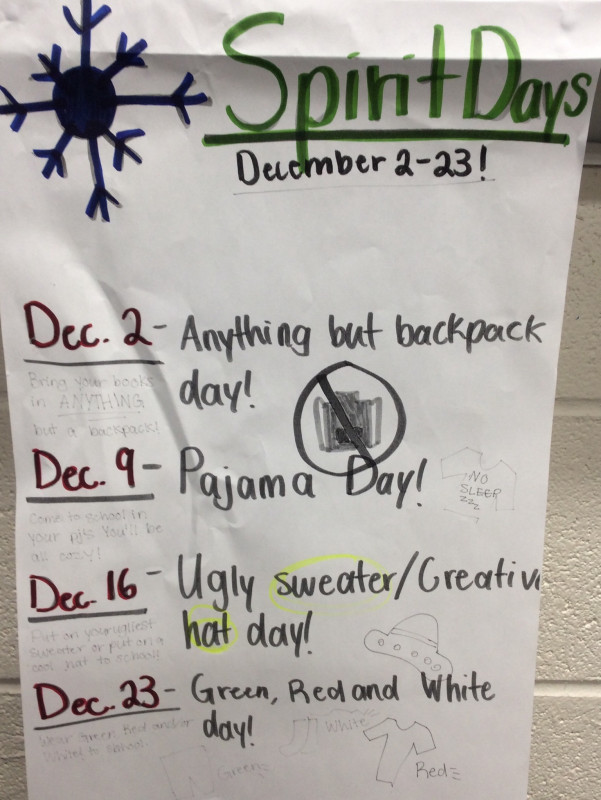 Spirit Days
December 2-23!
Dec. 2- Anything but backpack
day!
Bring your books
in ANYTHING
but a backpack!
Dec. 9- Pajama Day!
NO
SLEEP
zzz
Come to school in
your pjs You'll be
all cozy!
Dec. 16- Ugly sweater/Creative
hat day!
Put on your ugliest
sweater or put on a
cool hat to school!
Dec. 23- Green, Red and White
day!
Wear Green, Red and/or
White to school.
White
Green
Red